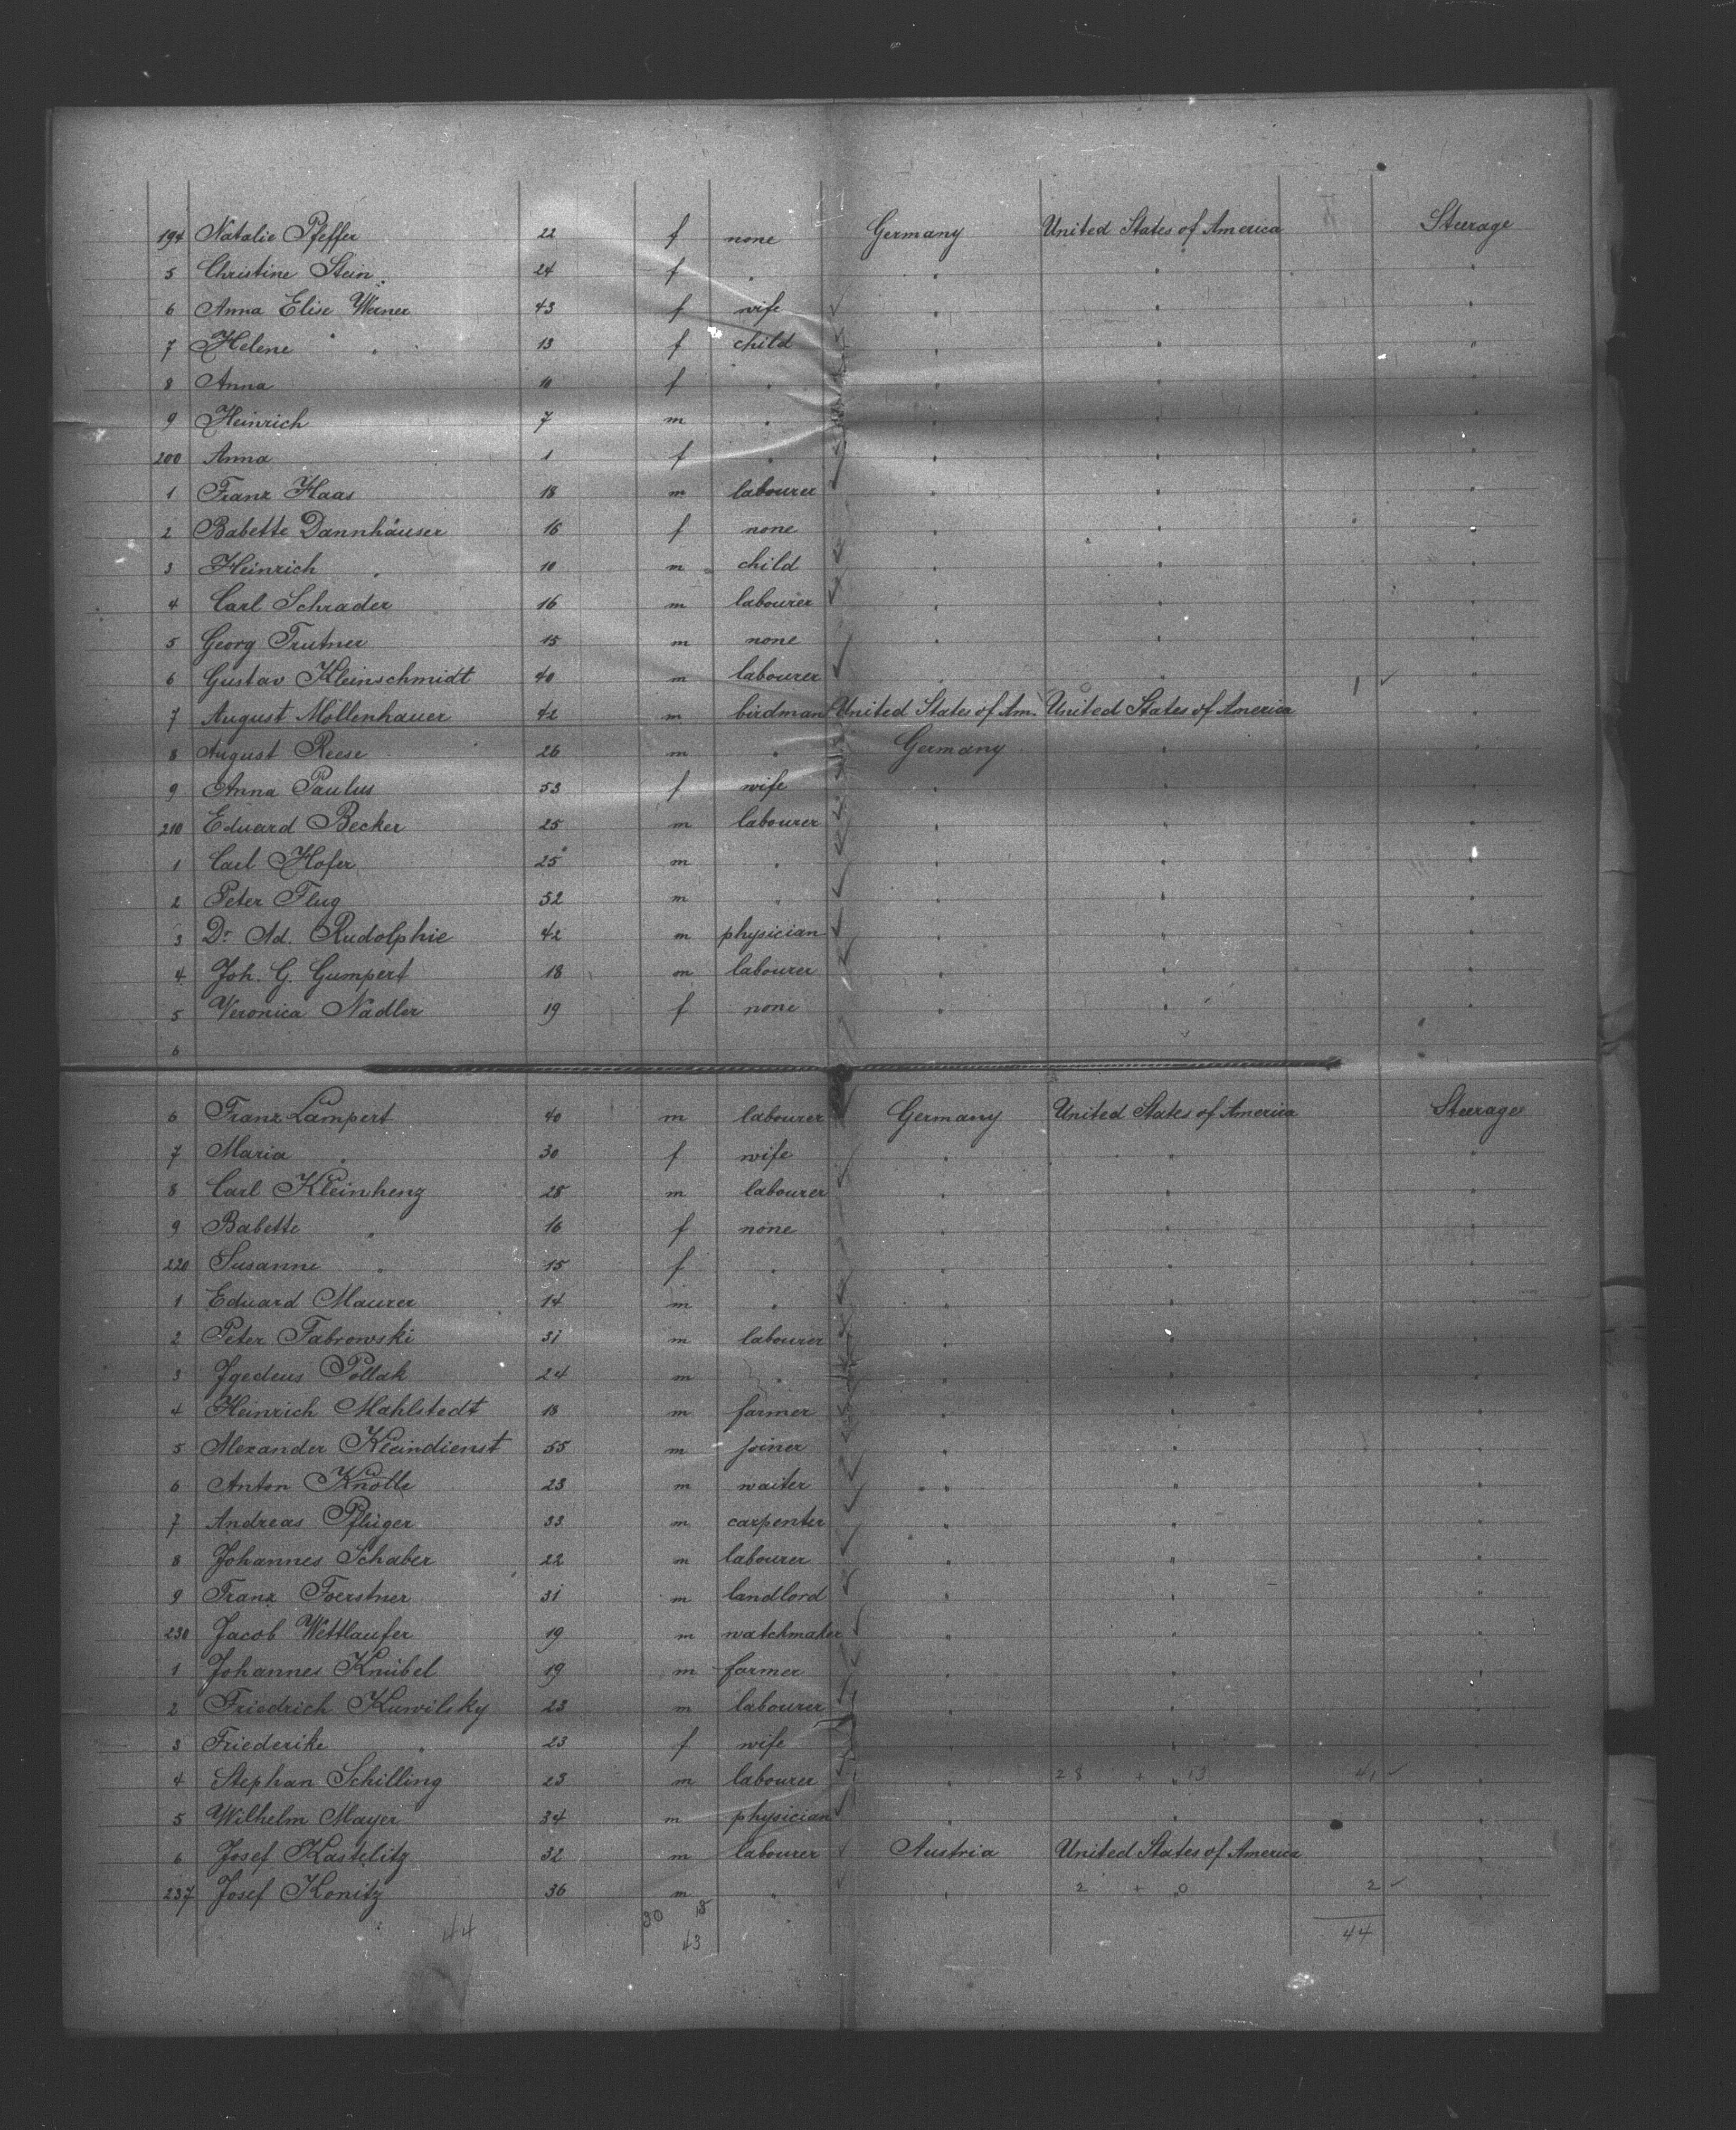 194 Natalie Pfeffer 22 f none Germany United States of America Steerage
5 Christine Stein 24 f " " " "
6 Anna Elise Werner 43 f wife " " "
7 Helene " 13 f child " " "
8 Anna 10 f " " " "
9 Heinrich 7 m " " " "
200 Anna 1 f " " " "
1 Franz Haas 18 m labourer " " "
2 Babette Dannhäuser 16 f none " " "
3 Heinrich " 10 m child " " "
4 Carl Schrader 16 m labourer " " "
5 Georg Trutner 15 m none " " "
6 Gustav Kleinschmidt 40 m labourer " " 1 ✓ "
7 August Mollenhauer 42 m birdman United States of Am. United States of America "
8 August Reese 26 m " Germany " "
9 Anna Paulus 53 f wife " " "
210 Eduard Becker 25 m labourer " " "
1 Carl Hofer 25 m " " " "
2 Peter Flug 52 m " " " "
3 Dr Ad. Rudolphie 42 m physician " " "
4 Joh. G. Gumpert 18 m labourer " " "
5 Veronica Nadler 19 f none " " "
6
6 Franz Lampert 40 m labourer Germany United States of America Steerage
7 Maria " 30 f wife " " "
8 Carl Kleinhenz 28 m labourer " " "
9 Babette " 16 f none " " "
220 Susanne " 15 f " " " "
1 Eduard Maurer 14 m " " " "
2 Peter Fabrowski 31 m labourer " " "
3 Pollak 24 m " " " "
4 Heinrich Mahlstedt 18 m farmer " " "
5 Alexander Kleindienst 55 m joiner " " "
6 Anton Knolle 23 m waiter " " "
7 Andreas Pflüger 33 m carpenter " " "
8 Johannes Schaber 22 m labourer " " "
9 Franz Foerstner 31 m landlord " " "
230 Jacob Wettlaufer 19 m watchmaker " " "
1 Johannes Knübel 19 m farmer " " "
2 Friedrich Kuwilsky 23 m labourer " " "
3 Friederike " 23 f wife " " "
4 Stephan Schilling 23 m labourer " 28 + 13 41 ✓ "
5 Wilhelm Mayer 34 m physician " " "
6 Josef Kastelitz 32 m labourer Austria United States of America "
237 Josef Konitz 36 m " " 2 + 0 2 ✓ "
44 30 13 44
43